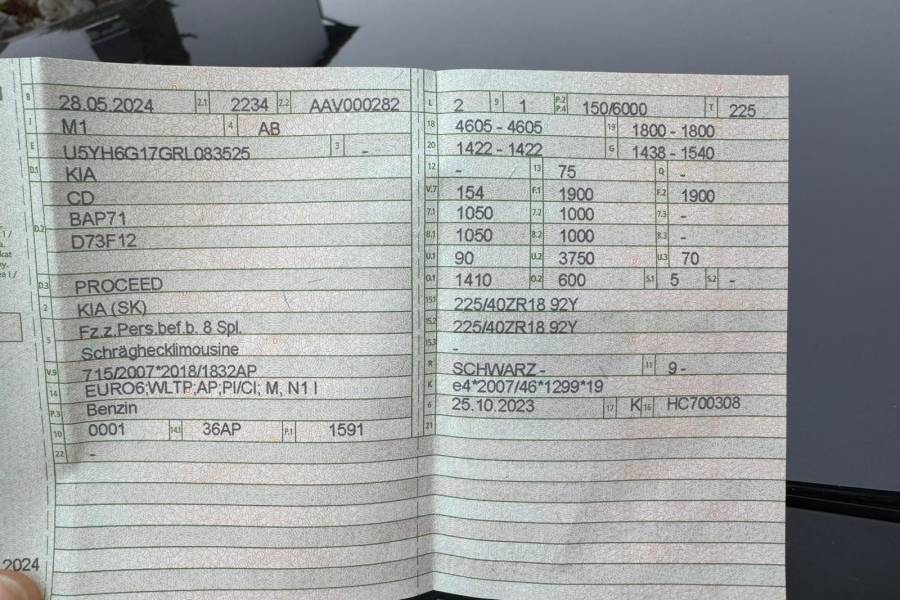 B 28.05.2024 2.1 2234 2.2 AAV000282
J M1 4 AB
E U5YH6G17GRL083525 3 -
D.1 KIA
CD
D.2 BAP71
D73F12
D.3 PROCEED
2 KIA (SK)
5 Fz.z.Pers.bef.b. 8 Spl.
Schräghecklimousine
V.9 715/2007*2018/1832AP
14 EURO6;WLTP;AP;PI/CI; M, N1 I
P.3 Benzin
10 0001 14.1 36AP P.1 1591
22 -
L 2 9 1 P.2 P.4 150/6000 T 225
18 4605 - 4605 19 1800 - 1800
20 1422 - 1422 G 1438 - 1540
12 - 13 75 Q -
V.7 154 F.1 1900 F.2 1900
7.1 1050 7.2 1000 7.3 -
8.1 1050 8.2 1000 8.3 -
U.1 90 U.2 3750 U.3 70
O.1 1410 O.2 600 S.1 5 S.2 -
15.1 225/40ZR18 92Y
15.2 225/40ZR18 92Y
15.3 -
R SCHWARZ - 11 9 -
K e4*2007/46*1299*19
6 25.10.2023 17 K 16 HC700308
21
2024